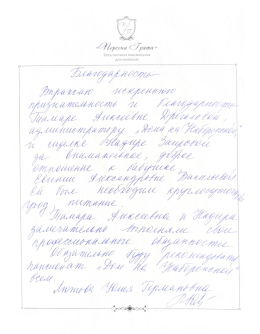 Благодарность
Выражаю искреннюю
признательность и благодарность
Тамаре Алексеевне
администратору "Дома на Набережной"
и сиделке Надире
за внимательное, доброе
отношение к бабушке
Евгении Александровне
Ей был необходим круглосуточный
уход, питание.
Тамара Алексеевна и Надира
замечательно выполняли свои
профессиональные обязанности.
Обязательно буду рекомендовать
пансионат Дом На "Набережной"
всем.
Юлия Германовна